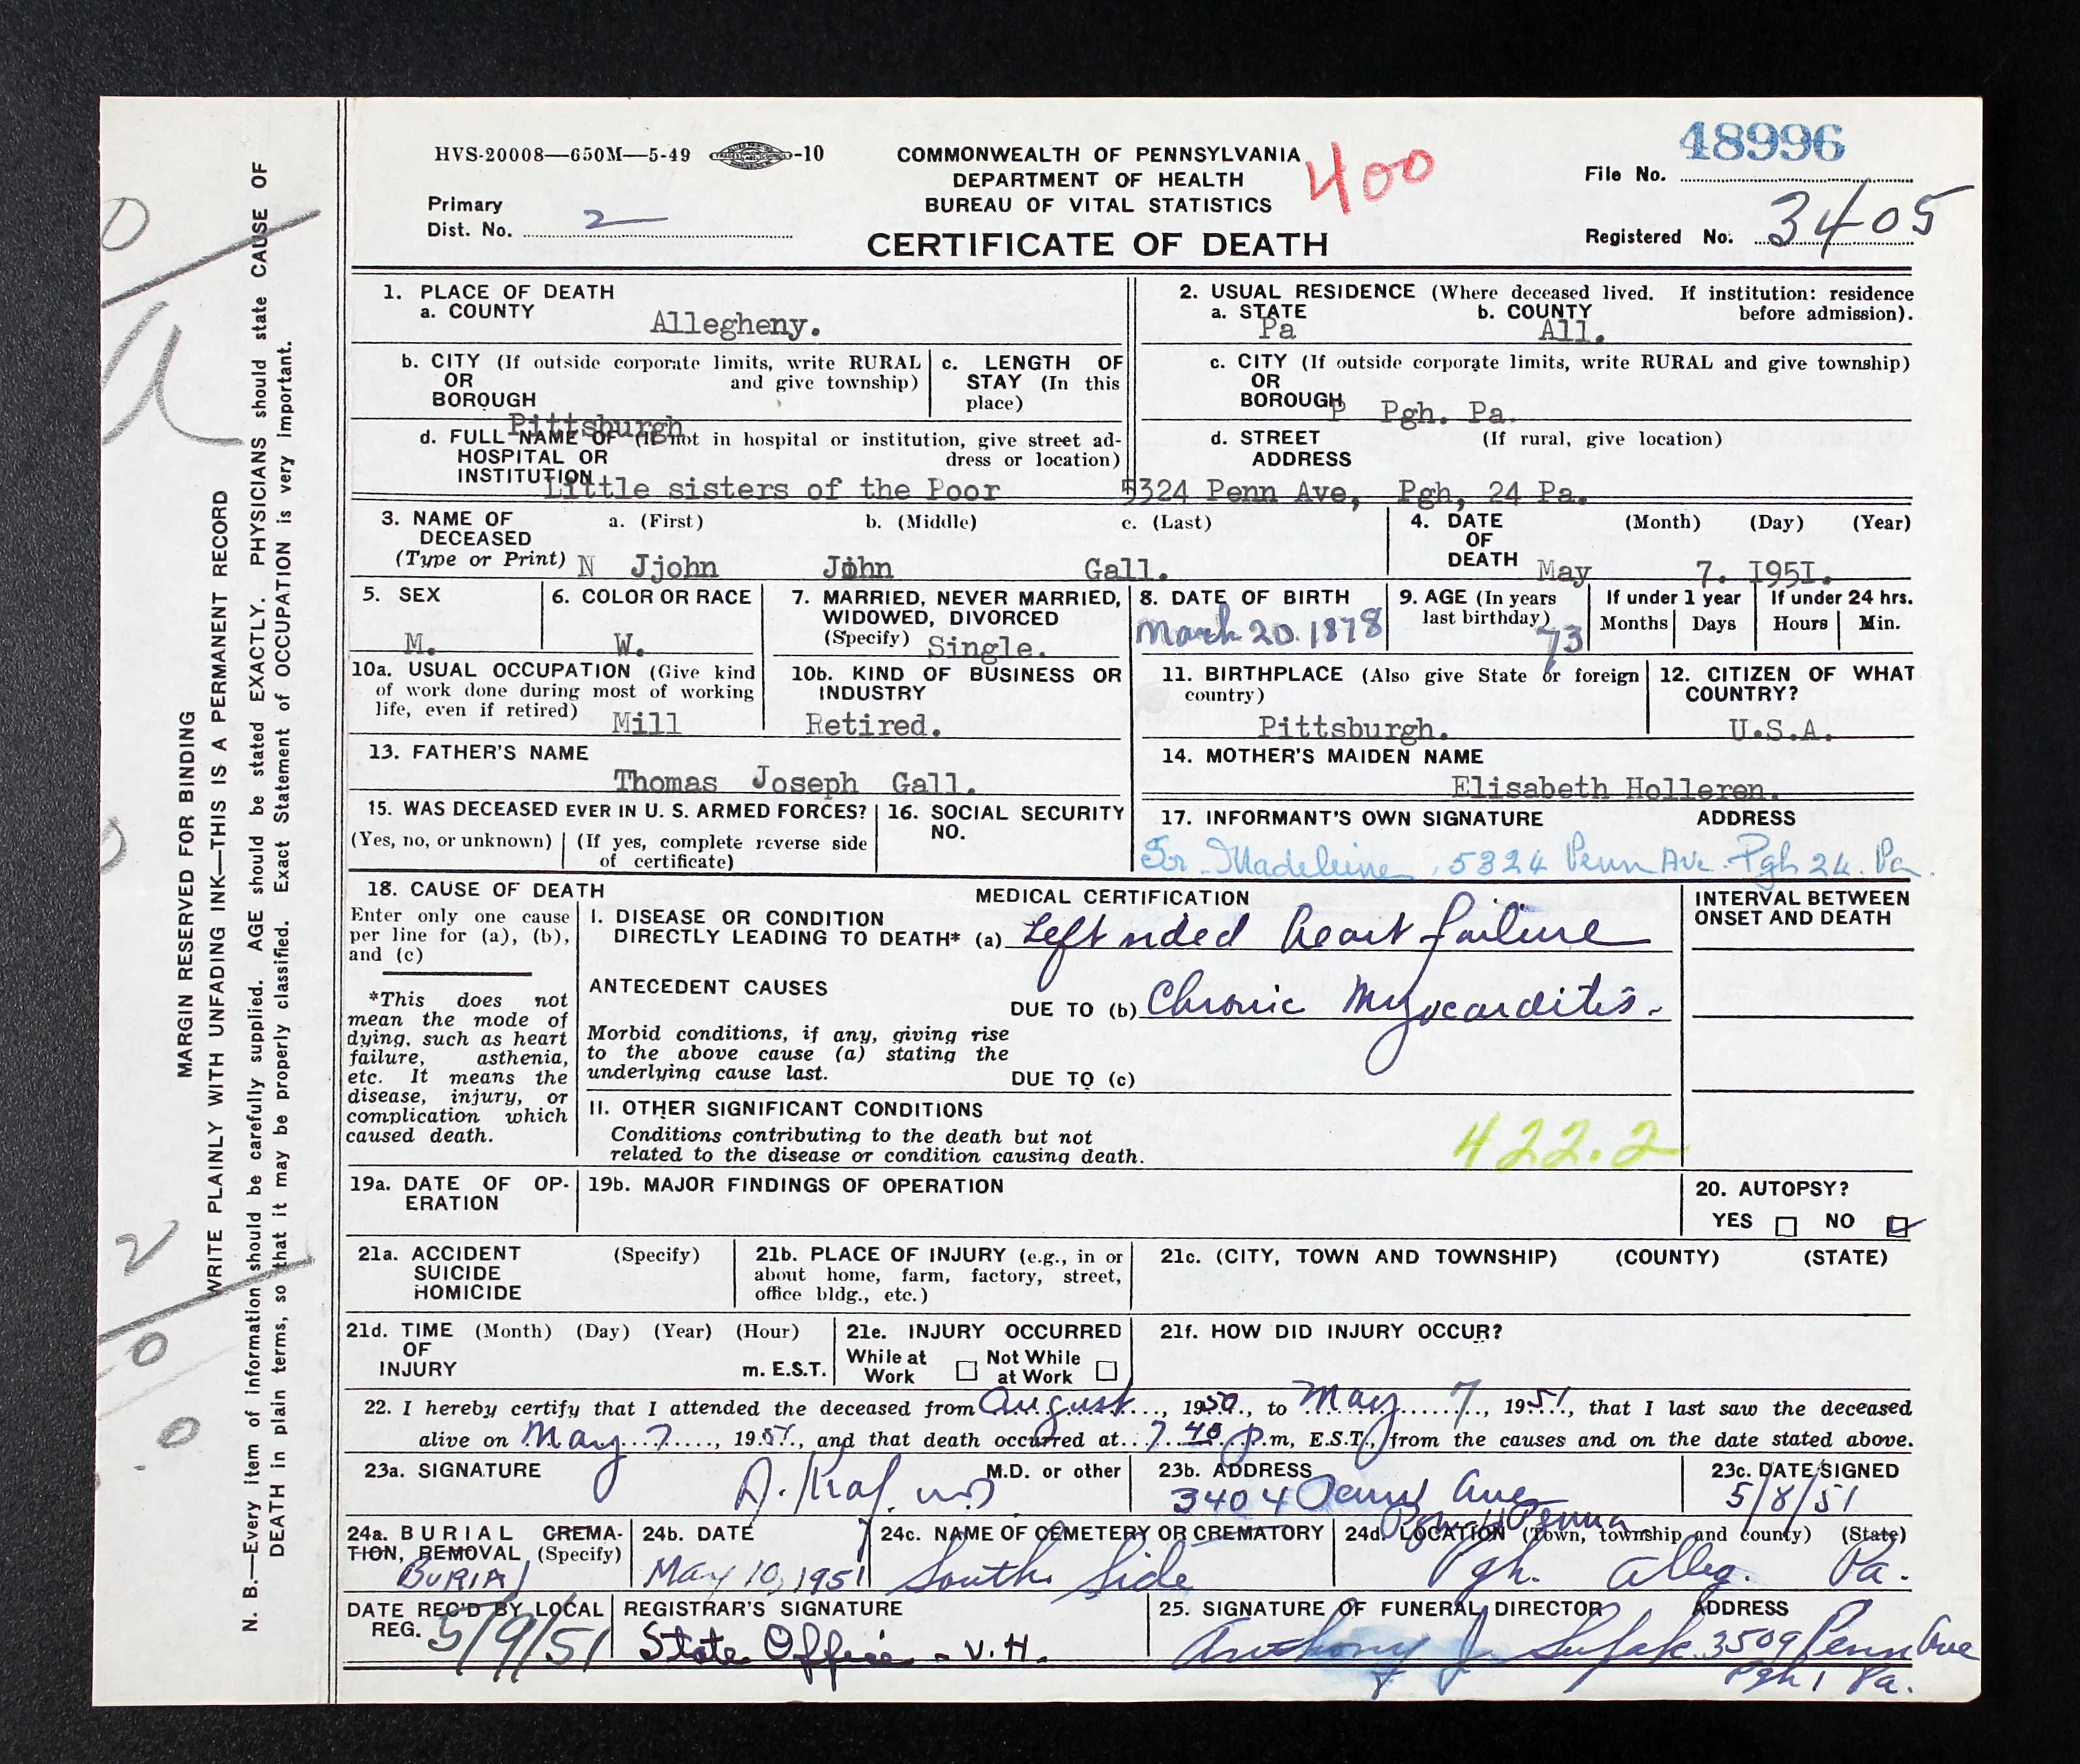 HVS-20008—650M—5-49 -10
COMMONWEALTH OF PENNSYLVANIA
DEPARTMENT OF HEALTH
BUREAU OF VITAL STATISTICS
CERTIFICATE OF DEATH
400
48996
File No.
Registered No. 3405
Primary
Dist. No. 2
MARGIN RESERVED FOR BINDING
WRITE PLAINLY WITH UNFADING INK—THIS IS A PERMANENT RECORD
N. B.—Every item of information should be carefully supplied. AGE should be stated EXACTLY. PHYSICIANS should state CAUSE OF
DEATH in plain terms, so that it may be properly classified. Exact Statement of OCCUPATION is very important.
1. PLACE OF DEATH
a. COUNTY Allegheny.
b. CITY (If outside corporate limits, write RURAL
OR and give township)
BOROUGH
Pittsburgh
c. LENGTH OF
STAY (In this
place)
d. FULL NAME OF (If not in hospital or institution, give street ad-
HOSPITAL OR dress or location)
INSTITUTION Little sisters of the Poor
2. USUAL RESIDENCE (Where deceased lived. If institution: residence
a. STATE b. COUNTY before admission).
Pa All.
c. CITY (If outside corporate limits, write RURAL and give township)
OR
BOROUGH P Pgh. Pa.
d. STREET (If rural, give location)
ADDRESS
5324 Penn Ave, Pgh, 24 Pa.
3. NAME OF a. (First) b. (Middle) c. (Last)
DECEASED
(Type or Print) N Jjohn John Gall.
4. DATE (Month) (Day) (Year)
OF
DEATH May 7. I95I.
5. SEX
M.
6. COLOR OR RACE
W.
7. MARRIED, NEVER MARRIED,
WIDOWED, DIVORCED
(Specify) Single.
8. DATE OF BIRTH
March 20. 1878
9. AGE (In years
last birthday) 73
If under 1 year
Months Days
If under 24 hrs.
Hours Min.
10a. USUAL OCCUPATION (Give kind
of work done during most of working
life, even if retired) Mill
10b. KIND OF BUSINESS OR
INDUSTRY
Retired.
11. BIRTHPLACE (Also give State or foreign
country)
Pittsburgh.
12. CITIZEN OF WHAT
COUNTRY?
U.S.A.
13. FATHER'S NAME
Thomas Joseph Gall.
14. MOTHER'S MAIDEN NAME
Elisabeth Holleren.
15. WAS DECEASED EVER IN U. S. ARMED FORCES?
(Yes, no, or unknown) (If yes, complete reverse side
of certificate)
16. SOCIAL SECURITY
NO.
17. INFORMANT'S OWN SIGNATURE ADDRESS
Sr. Madeleine, 5324 Penn Ave. Pgh 24. Pa.
18. CAUSE OF DEATH
Enter only one cause
per line for (a), (b),
and (c)
*This does not
mean the mode of
dying, such as heart
failure, asthenia,
etc. It means the
disease, injury, or
complication which
caused death.
MEDICAL CERTIFICATION
I. DISEASE OR CONDITION
DIRECTLY LEADING TO DEATH* (a) Left sided heart failure
ANTECEDENT CAUSES
DUE TO (b) Chronic Myocarditis.
Morbid conditions, if any, giving rise
to the above cause (a) stating the
underlying cause last.
DUE TO (c)
II. OTHER SIGNIFICANT CONDITIONS
Conditions contributing to the death but not
related to the disease or condition causing death.
422.2
INTERVAL BETWEEN
ONSET AND DEATH
19a. DATE OF OP-
ERATION
19b. MAJOR FINDINGS OF OPERATION
20. AUTOPSY?
YES NO
21a. ACCIDENT (Specify)
SUICIDE
HOMICIDE
21b. PLACE OF INJURY (e.g., in or
about home, farm, factory, street,
office bldg., etc.)
21c. (CITY, TOWN AND TOWNSHIP) (COUNTY) (STATE)
21d. TIME (Month) (Day) (Year) (Hour)
OF
INJURY m. E.S.T.
21e. INJURY OCCURRED
While at Not While
Work at Work
21f. HOW DID INJURY OCCUR?
22. I hereby certify that I attended the deceased from August, 1950, to May 7, 1951, that I last saw the deceased
alive on May 7, 1951, and that death occurred at 7 40 p.m, E.S.T., from the causes and on the date stated above.
23a. SIGNATURE M.D. or other
23b. ADDRESS
3404 Penn Ave
Penna
23c. DATE SIGNED
5/8/51
24a. BURIAL CREMA-
TION, REMOVAL (Specify)
BURIAL
24b. DATE
May 10, 1951
24c. NAME OF CEMETERY OR CREMATORY
South Side
24d. LOCATION (Town, township and county) (State)
Pgh. Alleg. Pa.
DATE REC'D BY LOCAL
REG. 5/9/51
REGISTRAR'S SIGNATURE
State Office - V.H.
25. SIGNATURE OF FUNERAL DIRECTOR ADDRESS
Anthony J. 3509 Penn Ave
Pgh 1 Pa.